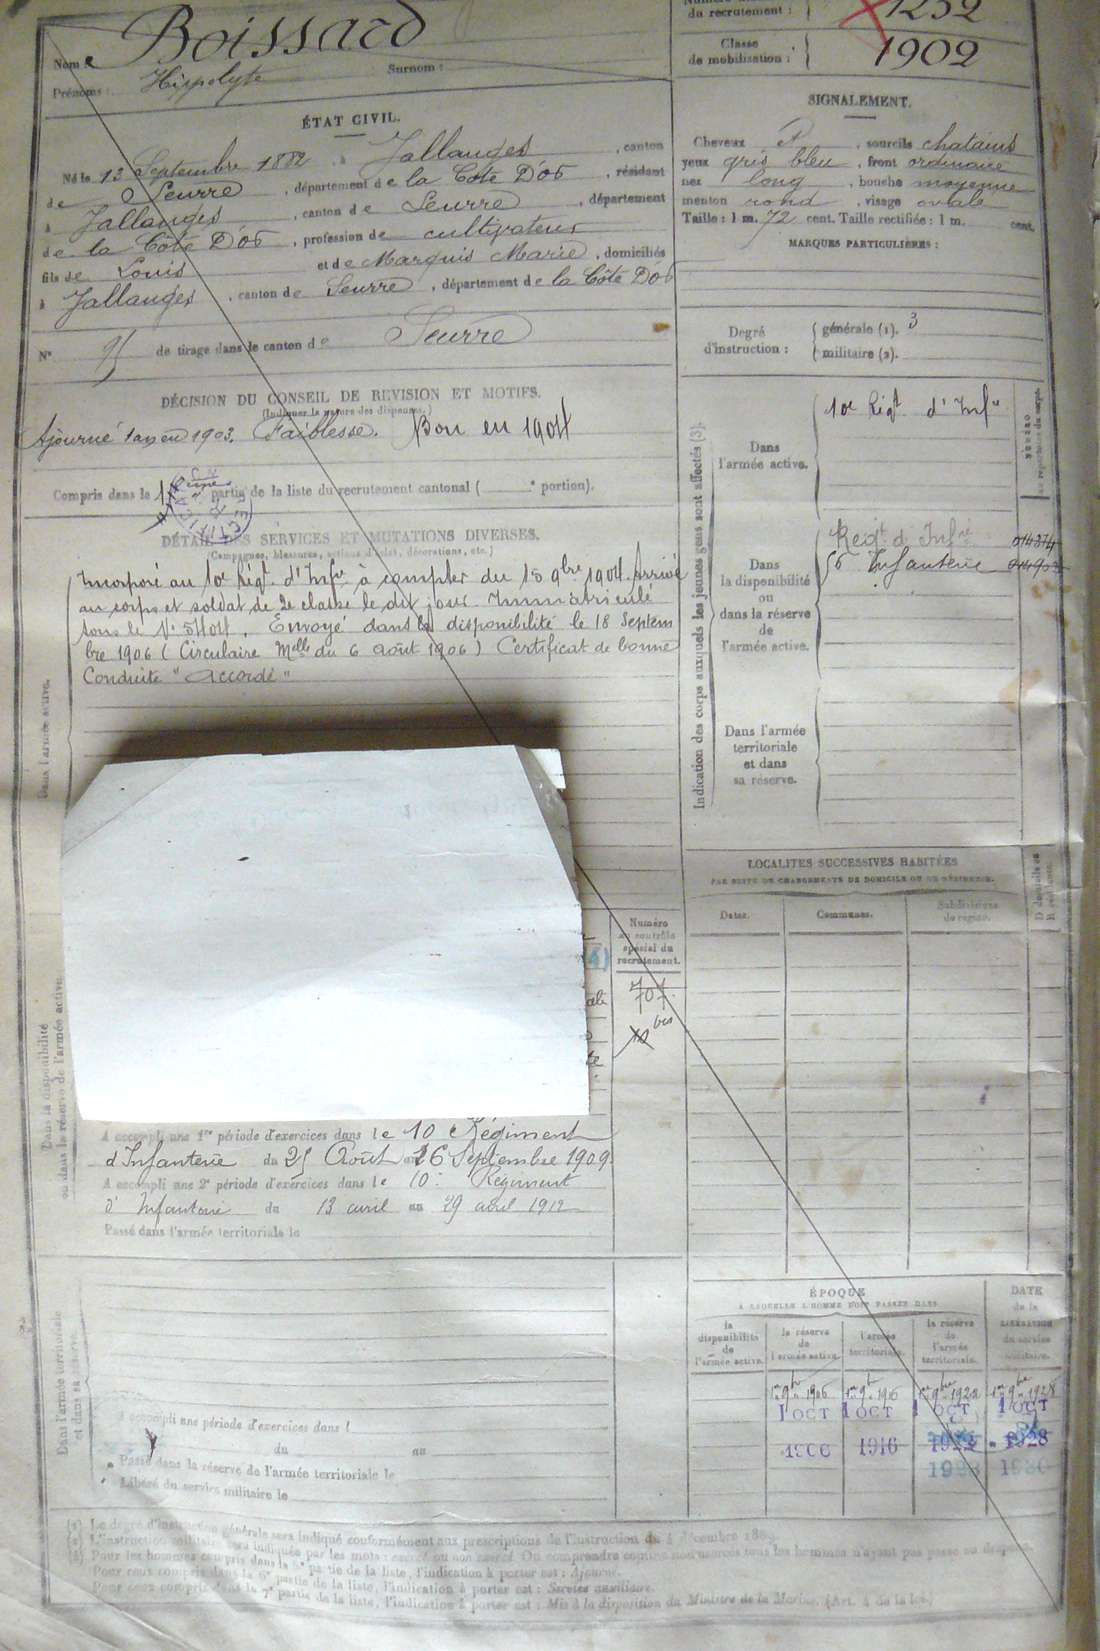 Nom : Boissard
Prénoms : Hippolyte Surnom :
du recrutement : 1252
Classe
de mobilisation : 1902
ÉTAT CIVIL.
Né le 13 Septembre 1882, à Jallanges, canton
de Seurre, département de la Côte D'or, résidant
à Jallanges, canton de Seurre, département
de la Côte D'or, profession de cultivateur
fils de Louis et de Marquis Marie, domiciliés
à Jallanges, canton de Seurre, département de la Côte D'or
N° de tirage dans le canton de Seurre
SIGNALEMENT.
Cheveux, sourcils chatains
yeux gris bleu, front ordinaire
nez long, bouche moyenne
menton rond, visage ovale
Taille : 1 m. 72 cent. Taille rectifiée : 1 m. cent.
MARQUES PARTICULIÈRES :
Degré
d'instruction :
générale (1). 3
militaire (2).
DÉCISION DU CONSEIL DE REVISION ET MOTIFS.
(Indiquer la nature des dispenses.)
Ajourné 1 an en 1903. Faiblesse. Bon en 1904
Compris dans la partie de la liste du recrutement cantonal ( portion).
DÉTAIL DES SERVICES ET MUTATIONS DIVERSES.
(Campagnes, blessures, actions d'éclat, décorations, etc.)
Incorporé au 10e Régt. d'Infie à compter du 15 9bre 1904. Arrivé
au corps et soldat de 2e classe le dit jour. Immatriculé
sous le N° 5404. Envoyé dans la disponibilité le 18 Septem
bre 1906 (Circulaire Melle du 6 août 1906) Certificat de bonne
Conduite "accordé"
Dans l'armée active.
Indication des corps auxquels les jeunes gens sont affectés (3).
Dans
l'armée active.
10e Régt. d'Infie
Dans
la disponibilité
ou
dans la réserve
de
l'armée active.
Régt. d'Infie 014374
56 Infanterie
Dans l'armée
territoriale
et dans
sa réserve.
LOCALITÉS SUCCESSIVES HABITÉES
PAR SUITE DE CHANGEMENTS DE DOMICILE OU DE RÉSIDENCE.
Dates. Communes. Subdivisions
de région. D domicile ou
R résidence.
Numéro
au contrôle
spécial du
recrutement.
707
bis
Dans la disponibilité
ou dans la réserve de l'armée active
A accompli une 1re période d'exercices dans le 10 Régiment
d'Infanterie du 25 Août au 16 Septembre 1909
A accompli une 2e période d'exercices dans le 10e Régiment
d'Infanterie du 13 avril au 29 avril 1912
Passé dans l'armée territoriale le
Dans l'armée territoriale
et dans sa réserve.
A accompli une période d'exercices dans l
du au
Passé dans la réserve de l'armée territoriale le
Libéré du service militaire le
ÉPOQUE
À LAQUELLE L'HOMME DOIT PASSER DANS
DATE
de la
LIBÉRATION
du service
militaire.
la
disponibilité
de
l'armée active.
la réserve
de
l'armée active.
l'armée
territoriale.
la réserve
de
l'armée
territoriale.
1er 9bre 1906 1er 9bre 1916 1er 9bre 1922 1er 9bre 1928
1 OCT 1 OCT 1 OCT 1 OCT
1906 1916 1922 1928
(1) Le degré d'instruction générale sera indiqué conformément aux prescriptions de l'instruction du 4 décembre
(2) L'instruction militaire sera indiquée par les mots : exercé ou non exercé. On comprendra comme non exercés tous les hommes n'ayant pas passé au drapeau.
(3) Pour les hommes compris dans la 5e partie de la liste, l'indication à porter est : Ajourné.
Pour ceux compris dans la 6e partie de la liste, l'indication à porter est : Service auxiliaire.
Pour ceux compris dans la 7e partie de la liste, l'indication à porter est : Mis à la disposition du Ministre de la Marine. (Art. 4 de la loi.)